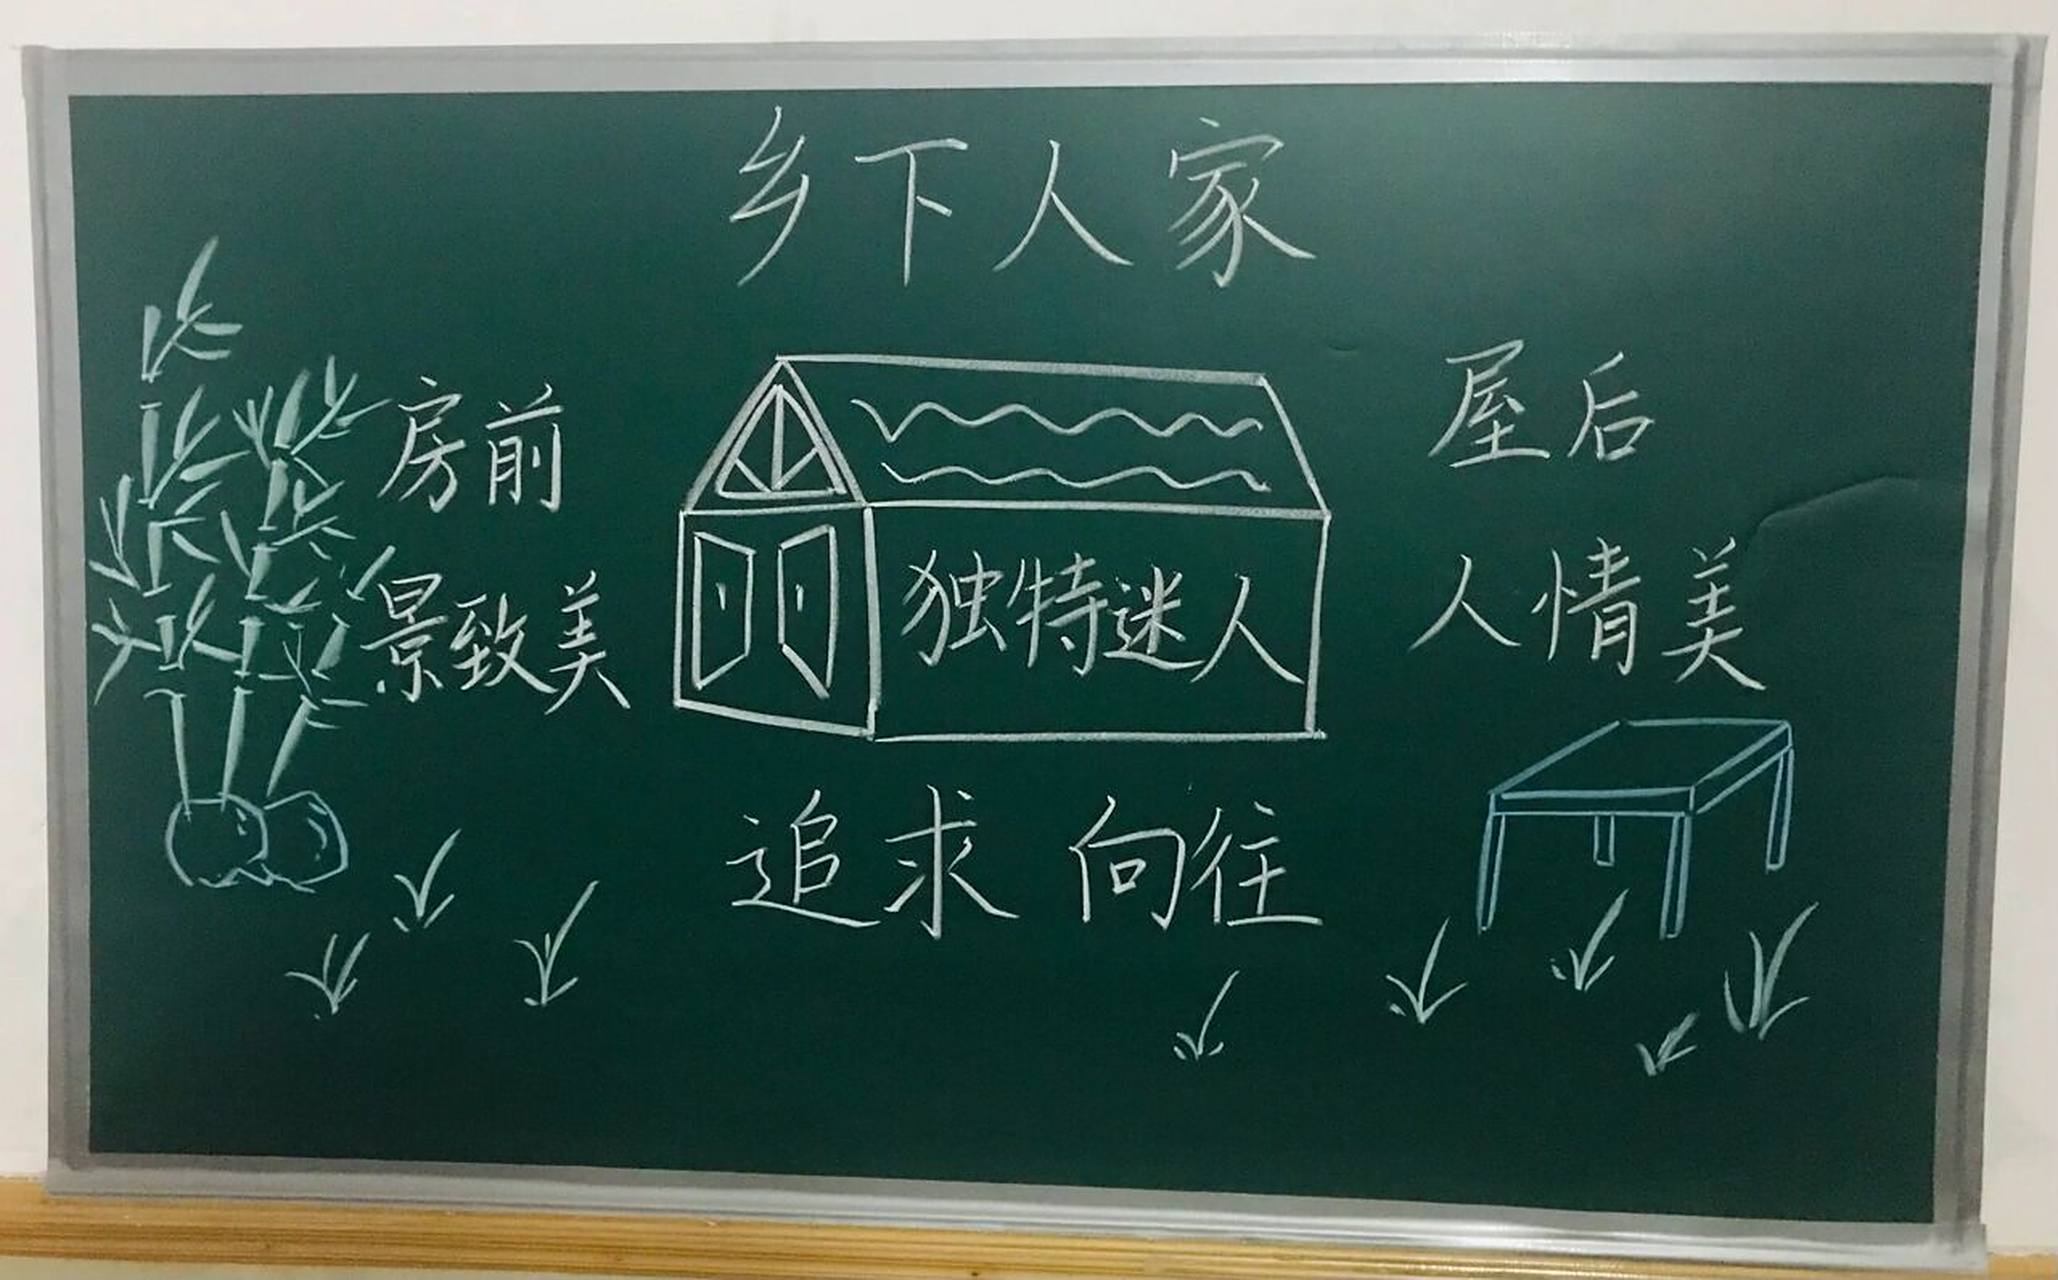 乡下人家
房前
景致美
独特迷人
屋后
人情美
追求 向往